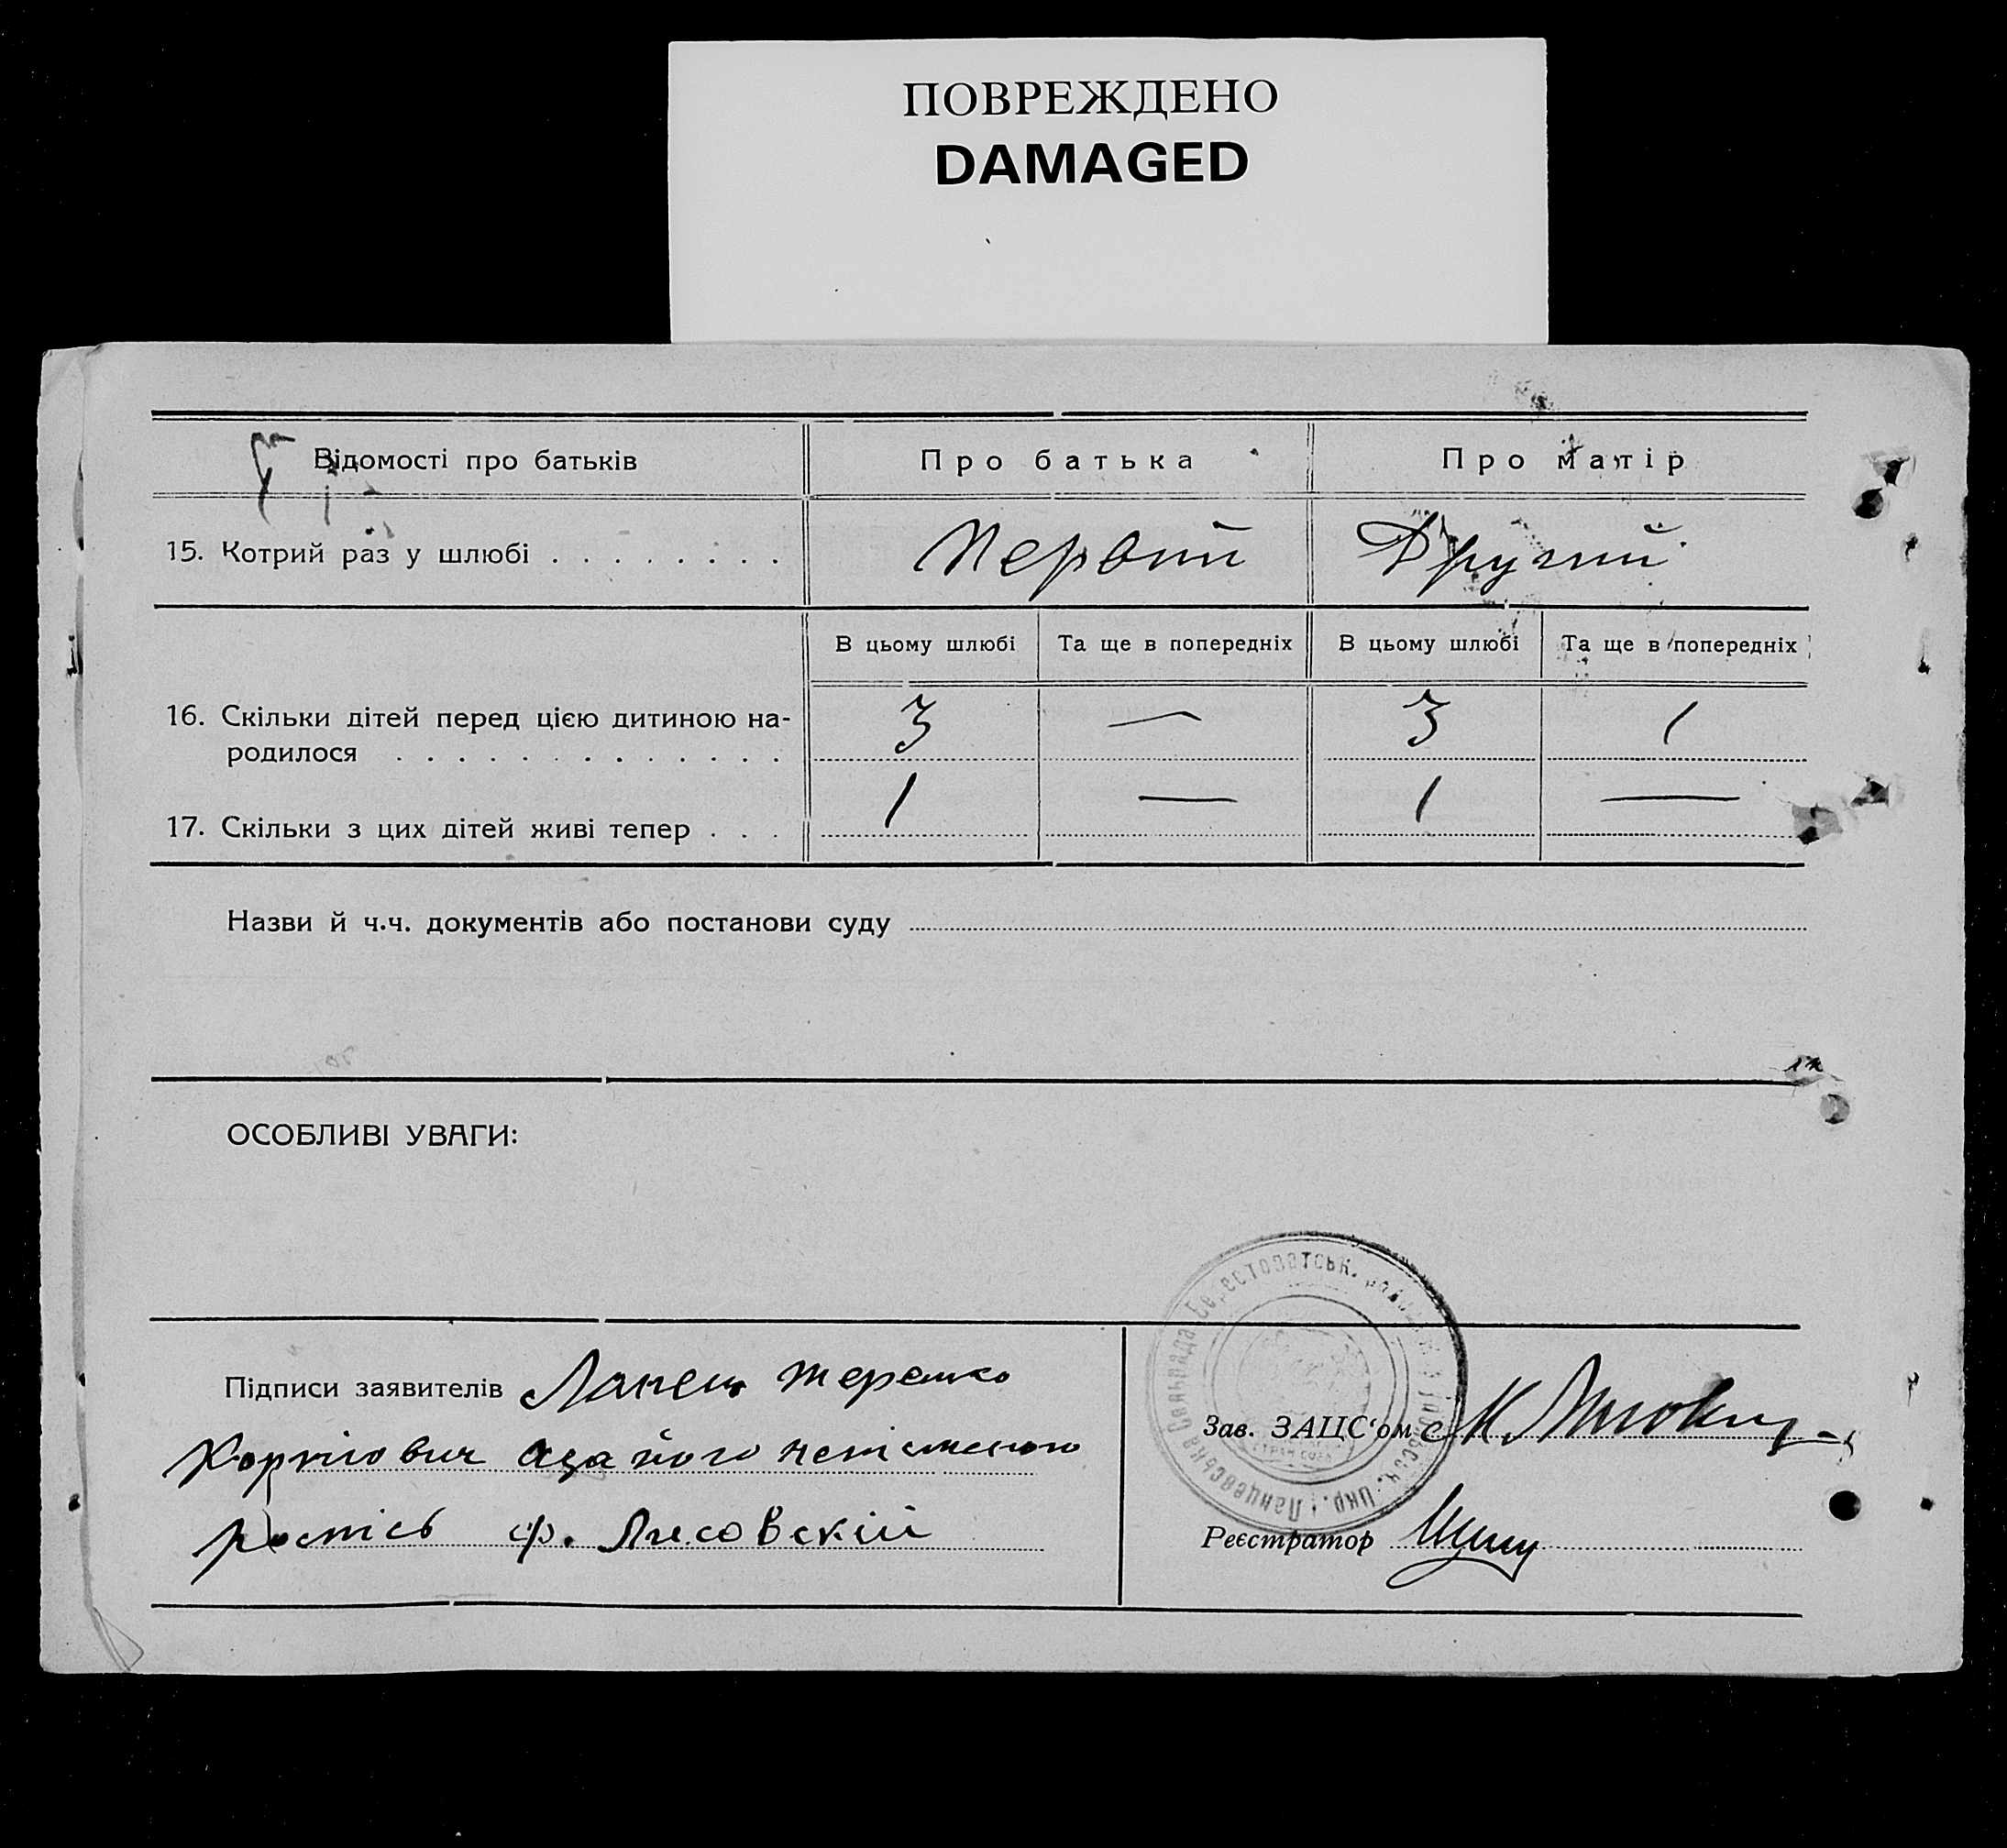 ПОВРЕЖДЕНО
DAMAGED
Відомості про батьків
Про батька
Про матір
15. Котрий раз у шлюбі
Первий
Другий
В цьому шлюбі
Та ще в попередніх
В цьому шлюбі
Та ще в попередніх
16. Скільки дітей перед цією дитиною на-
родилося
3 — 3 1
17. Скільки з цих дітей живі тепер
1 — 1 —
Назви й ч.ч. документів або постанови суду
ОСОБЛИВІ УВАГИ:
Підписи заявителів
а за його
ф. Лисовскій
Зав. ЗАЦС‘ом
Реєстратор